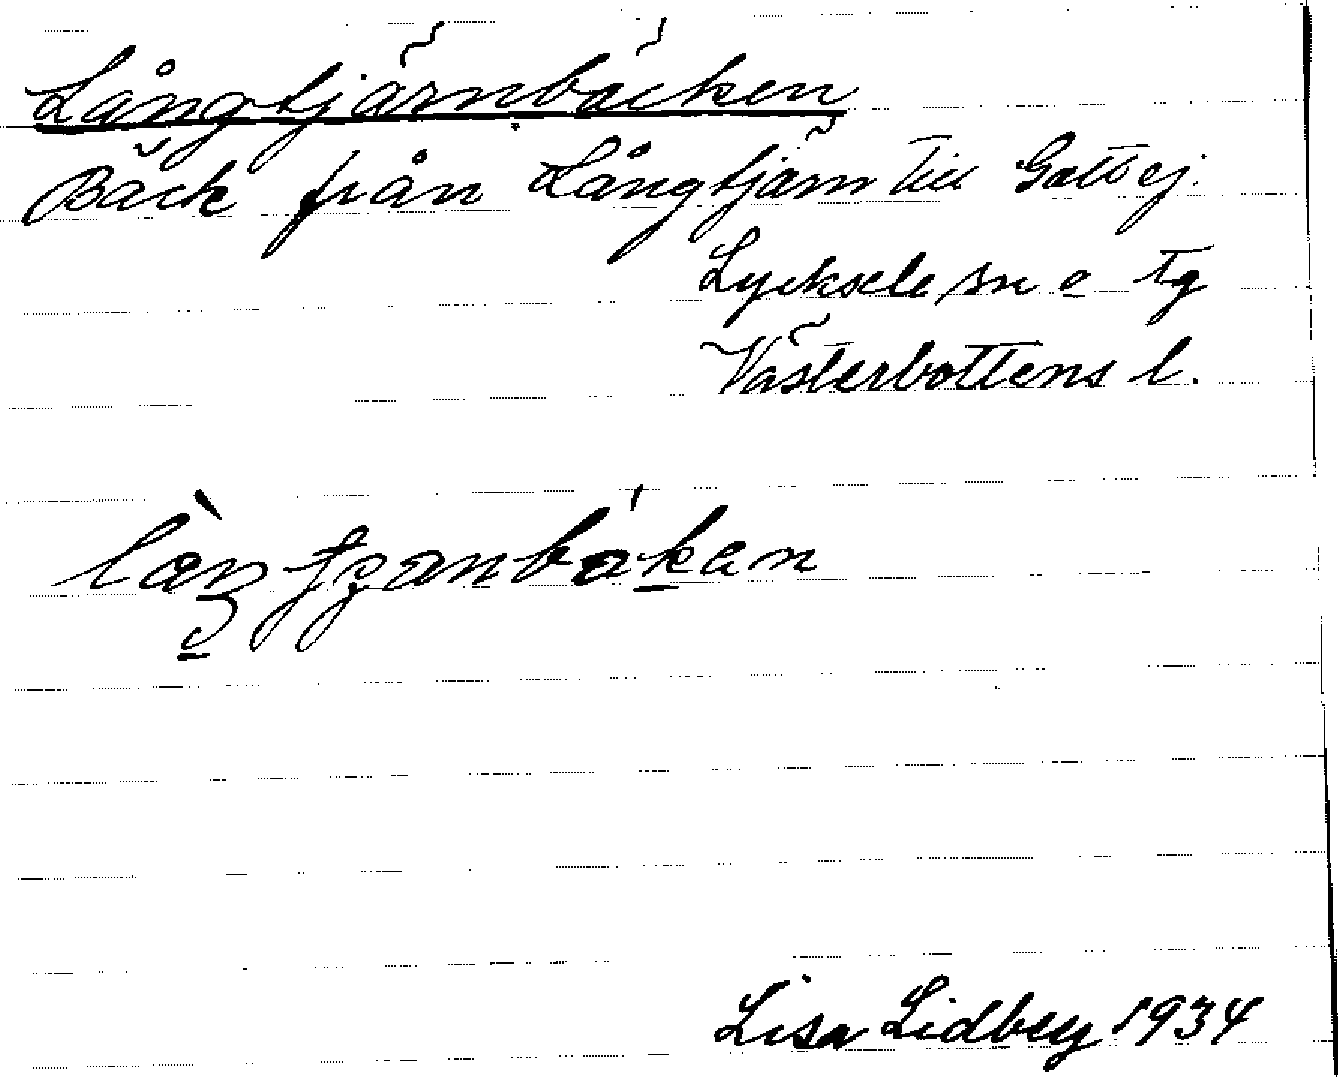 Långtjärnbäcken
Bäck från Långtjärn till
Lycksele sn o Tg
Västerbottens l.
Lisa Lidberg 1934